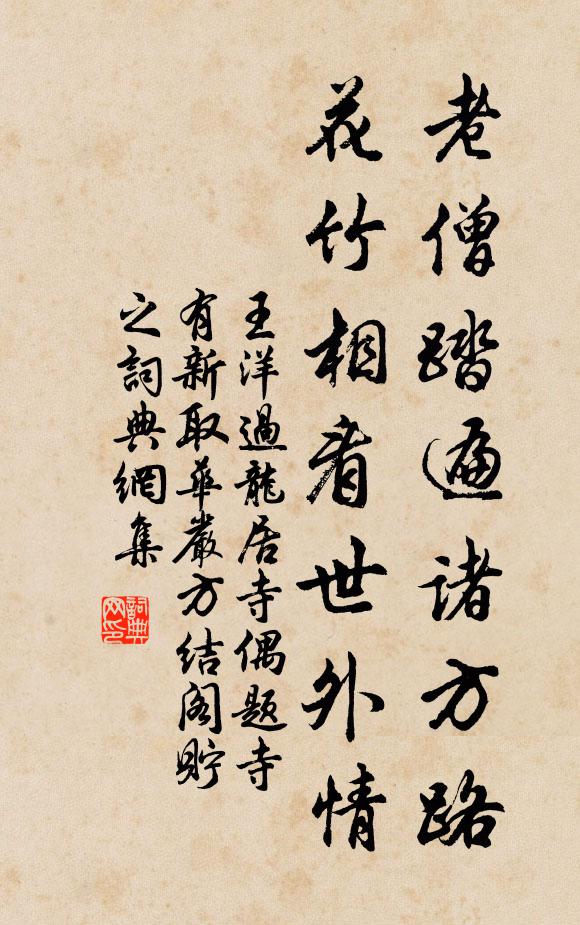 老僧踏遍諸方路
花竹相看世外情
王洋過龍居寺偶題寺
有新取華嚴方結閣貯
之詞典網集
詞典
网印